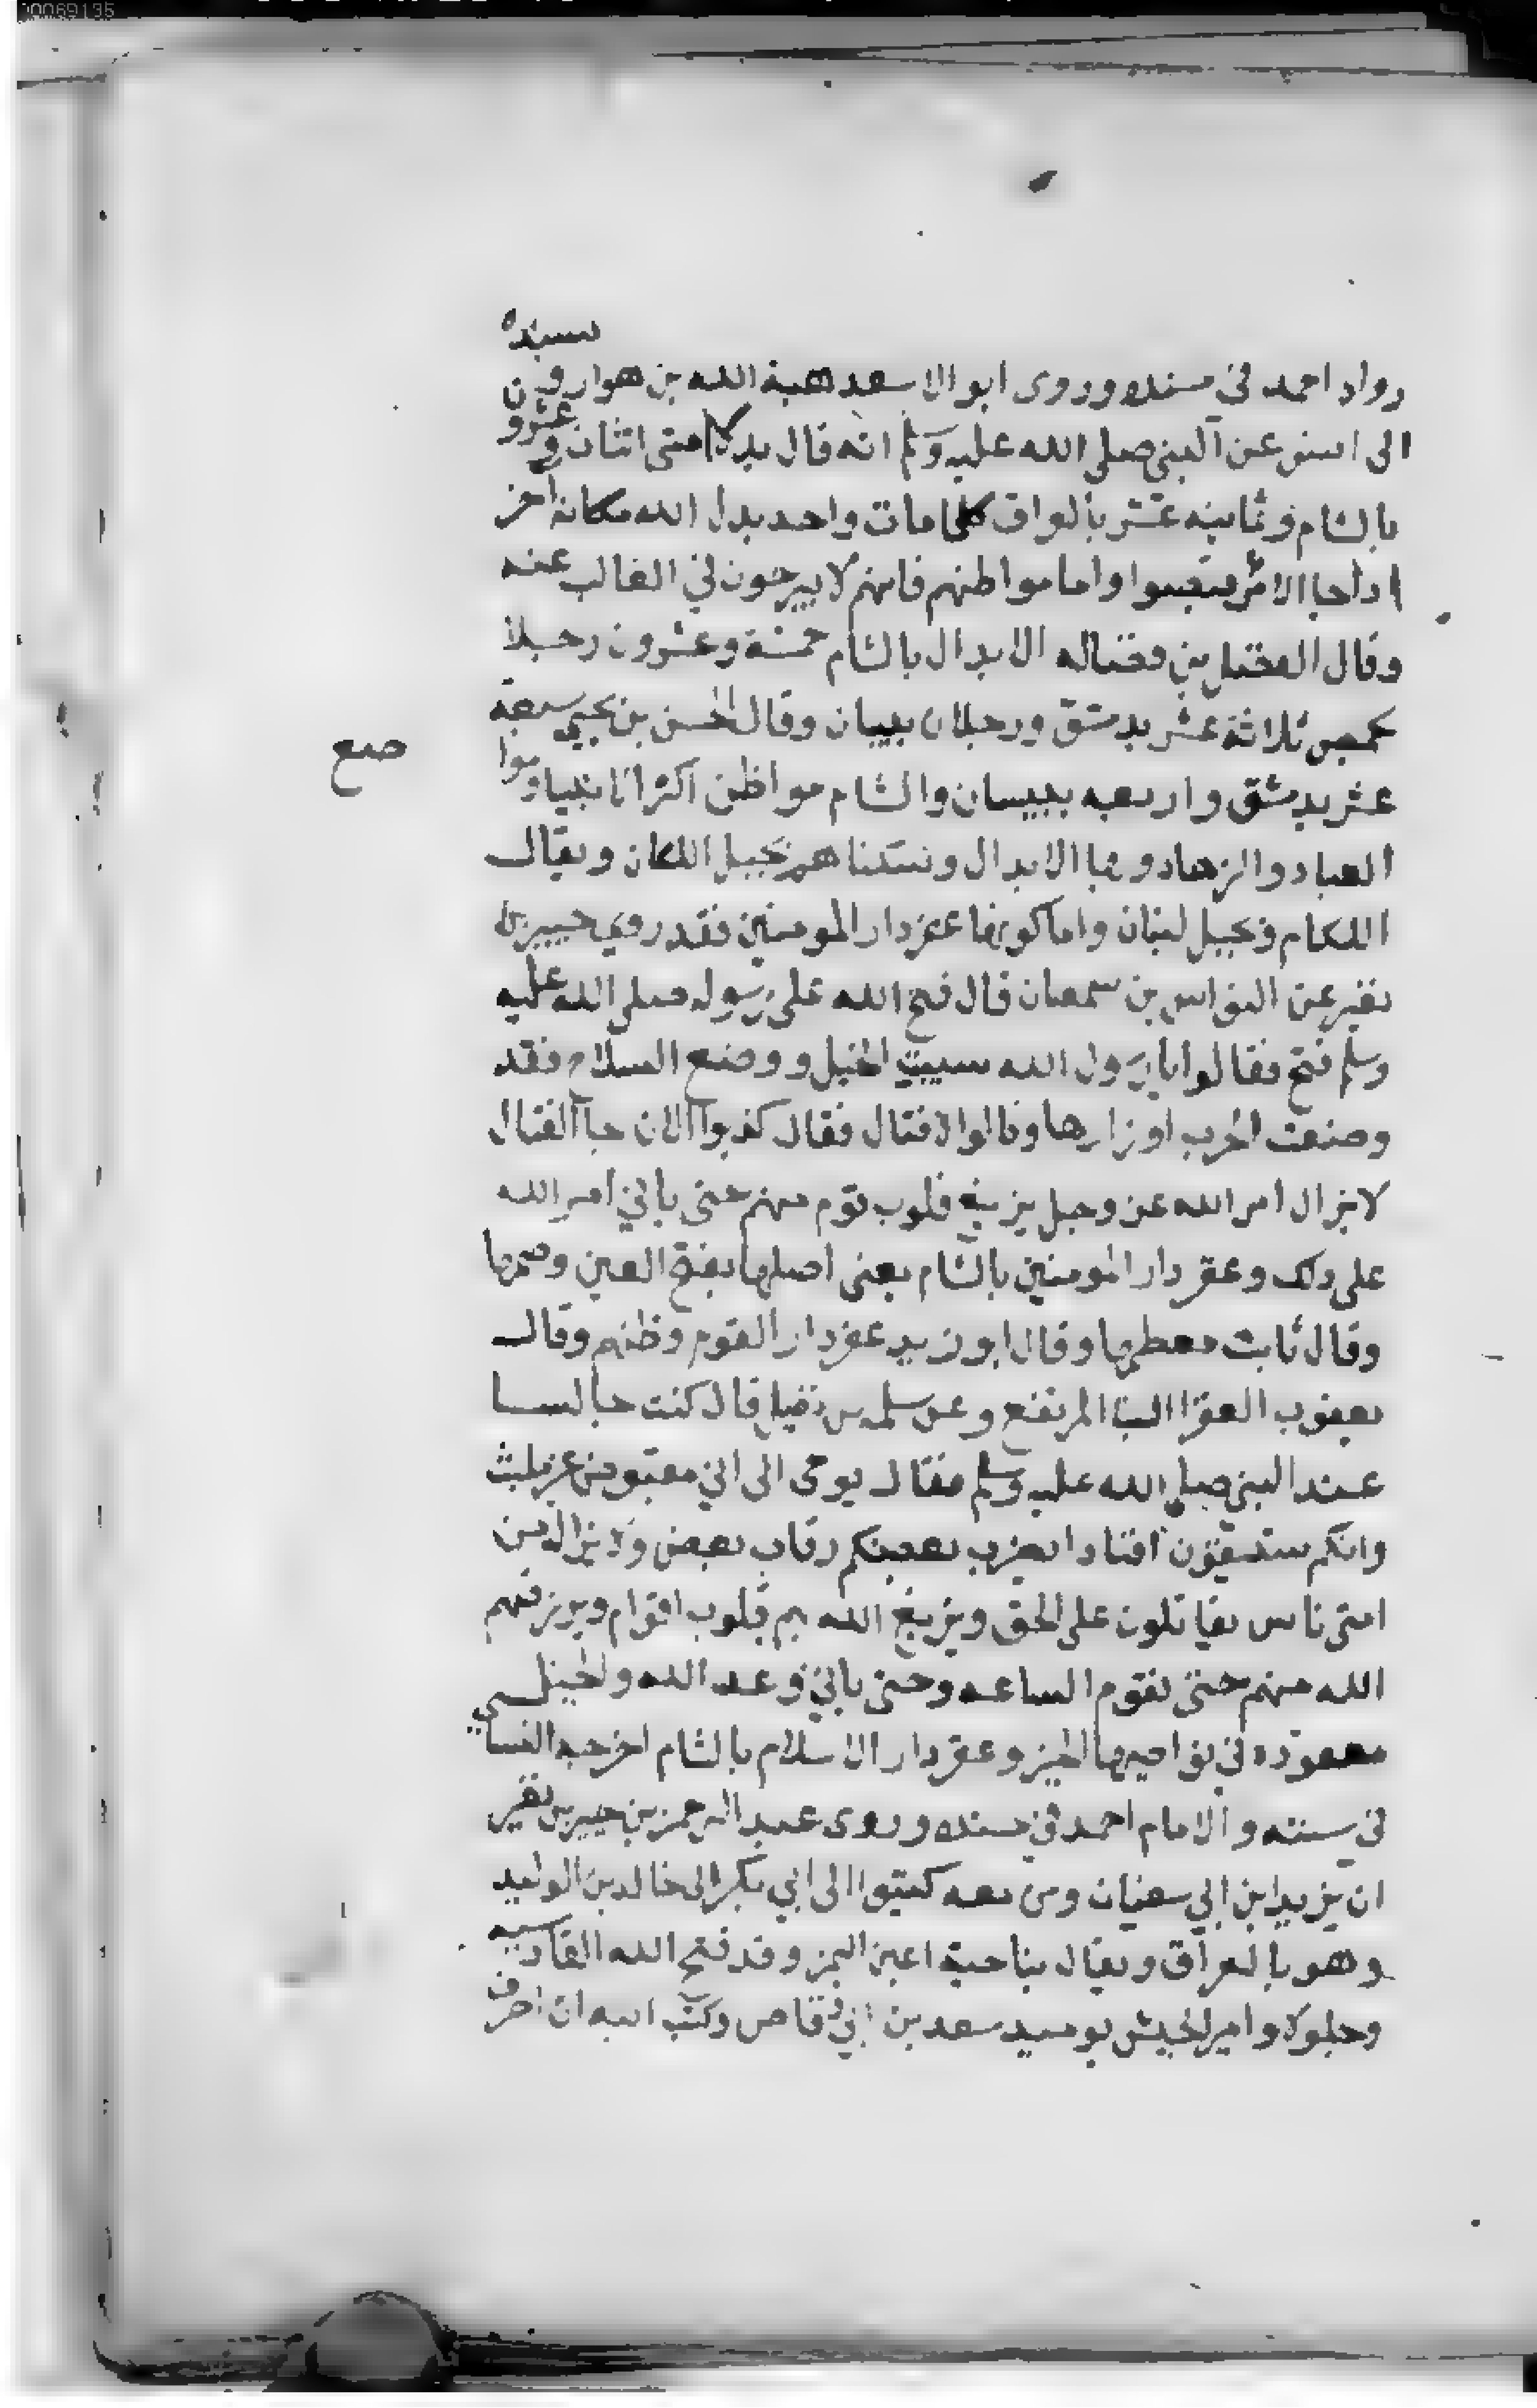 بسنده
رواه احمد في مسنده وروى ابو الاسعد هبة الله بن هوارون
الى انس عن النبي صلى الله عليه وسلم انه قال بدلا امتى اثنان وعشرو
بالشام وثمانيه عشر بالعراق كلما مات واحد بدل الله مكانه اخر
اذا جا الامر قبضوا واما مواطنهم فانهم لا يبرحون في الغالب عنه
وقال الفضل بن فضاله الابدال بالشام خمسة وعشرون رجلا
بحمص ثلاثة عشر بدمشق ورجلان ببيسان وقال الحسن بن يحيى سبعة
صع
عشر بدمشق واربعه ببيسان والشام مواطن اكثر الانبيا وموا
العباد والزهاد وبها الابدال وسكناهم بجبل اللكان ويقال
اللكام وبجبل لبنان واما كونها عقر دار المومنين فقد روى جبير بن
نفير عن النواس بن سمعان قال فتح الله على رسوله صلى الله عليه
وسلم فتح فقالوا يا رسول الله سيبت الخيل ووضع السلاح فقد
وضعت الحرب اوزارها وقالوا لا قتال فقال كذبوا الان جا القتال
لا يزال امر الله عز وجل يزيغ قلوب قوم منهم حتى ياتي امر الله
على ذلك وعقر دار المومنين بالشام يعنى اصلها بفتح العين وضمها
وقال ثابت معظمها وقال ابو زيد عقر دار القوم وطنهم وقال
يعقوب العقر البنا المرتفع وعن سلمه بن نفيل قال كنت جالسا
عند النبي صلى الله عليه وسلم فقال يوحى الى اني مقبوض غير ملبث
وانكم ستبقون افنادا يضرب بعضكم رقاب بعض ولا يزال من
امتى ناس يقاتلون على الحق ويزيغ الله بهم قلوب اقوام ويرزقهم
الله منهم حتى تقوم الساعه وحتى ياتي وعد الله والخيل
معقوده في نواصيها الخير وعقر دار الاسلام بالشام اخرجه النساي
في سننه والامام احمد في مسنده وروى عبد الرحمن بن جبير بن نفير
ان يزيد ابن ابي سفيان ومن معه كتبوا الى ابي بكر الى خالد بن الوليد
وهو بالعراق ويقال بناحية اعين اليمز وقد فتح الله القادسيه
وجلولا وامير الجيش يوميد سعد بن ابي وقاص وكتب اليه ان احرف